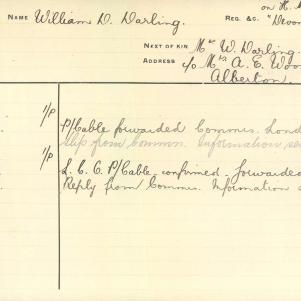 on H. M
NAME William D. Darling. REG. &C. "Devon
NEXT OF KIN Mr W. Darling.
ADDRESS c/o Mrs A. E. Woo
Alberton.
1/P P/Cable forwarded Commrs. Lond
Slip from Commn. Information se
1/P L. C. C. P/Cable confirmed forwarded
Reply from Commrs. Information s